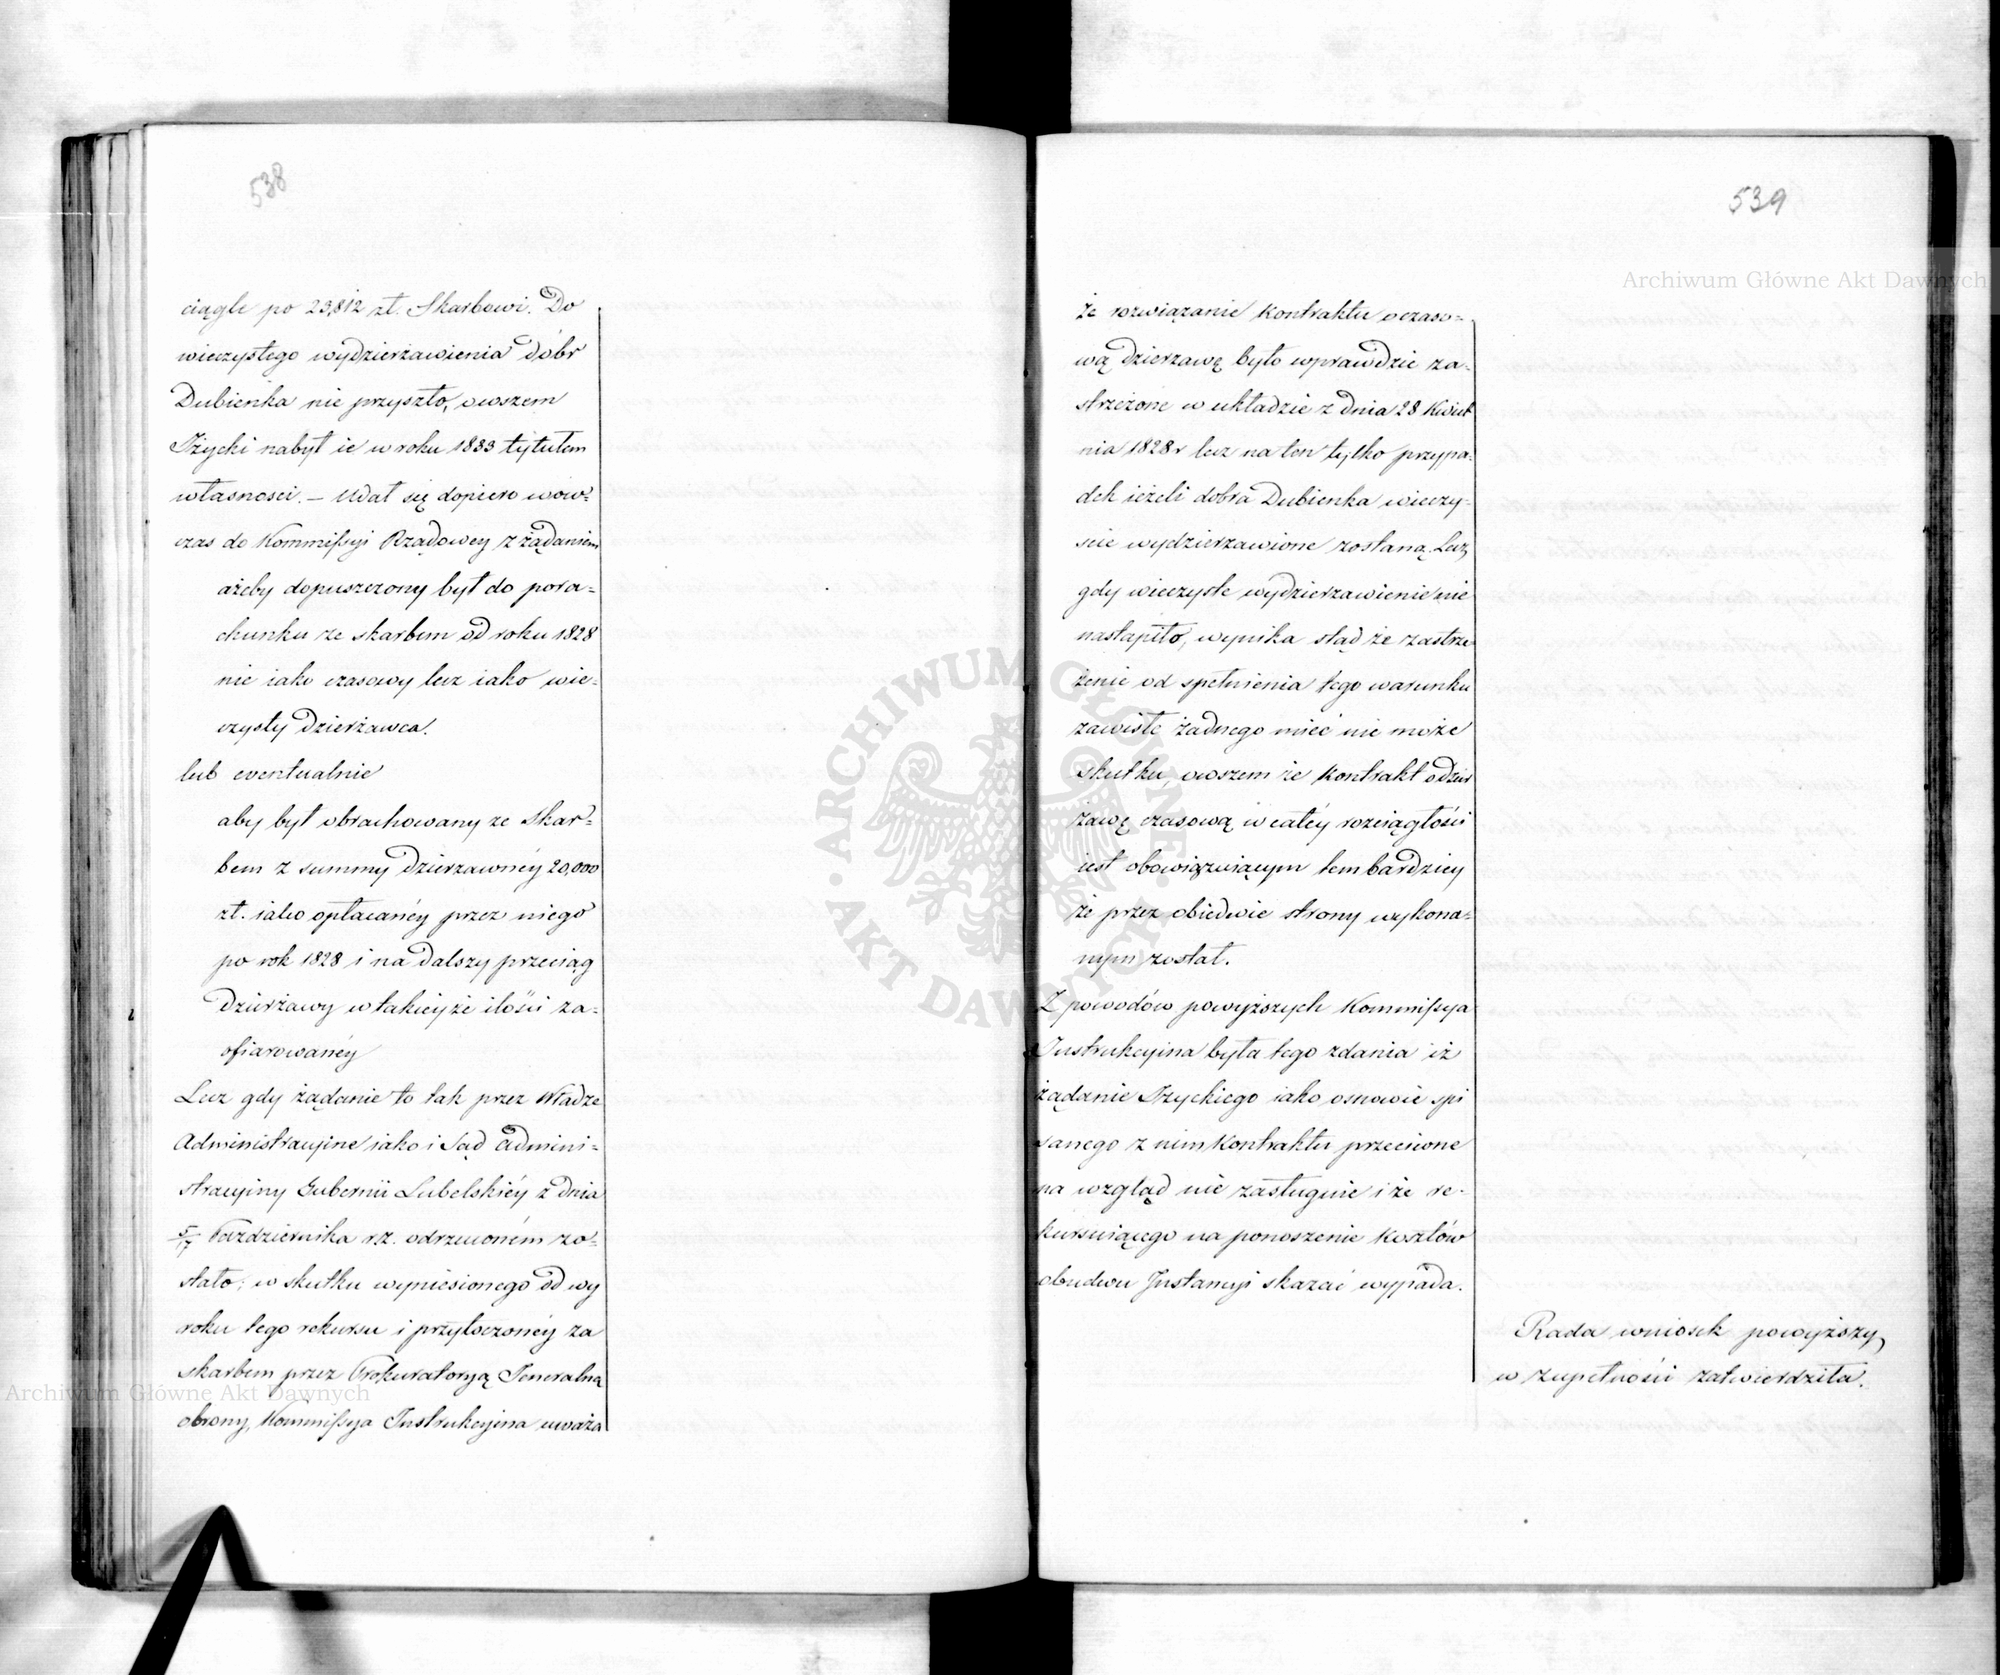 538
ciągle po 23,812 zł. Skarbowi. Do
wieczystego wydzierżawienia dóbr
Dubienka nie przyszło, owszem
Iżycki nabył ie w roku 1833 tytułem
własnosci. – Udał się dopiero wów-
czas do Kommissyi Rządowey z żądaniem
ażeby dopuszczony był do pora-
chunku ze skarbem od roku 1828
nie iako czasowy lecz iako wie-
czysty dzierżawca.
lub eventualnie
aby był obrachowany ze Skar-
bem z summy dzierzawnéy 20,000
zł. iako opłacanéy przez niego
po rok 1828 i na dalszy przeciąg
dzierżawy w takieyże ilości za-
ofiarowanéy
Lecz gdy żądanie to tak przez Władze
Administracyine iako i Sąd Admini-
stracyiny Gubernii Lubelskiéy z dnia
5/17 Października r.z. odrzuconém zo-
stało; w skutku wyniesionego od wy
roku tego rekursu i przytoczonéy za
skarbem przez Prokuratoryą Jeneralną
obrony, Kommissya Instrukcyina uważa
539
że rozwiązanie kontraktu o czaso-
wą dzierzawę było wprawdzie za-
strzeżone w układzie z dnia 28 Kwiet
nia 1828 r lecz na ten tylko przypa-
dek ieżeli dobra Dubienka wieczy-
ście wydzierzawione zostaną. Lecz
gdy wieczyste wydzierzawienie nie
nastąpiło, wynika stąd że zastrze
żenie od spełnienia tego warunku
zawisłe żadnego mieć nie może
skutku, owszem że kontrakt o dzier
żawę czasową w całéy rozciągłości
iest obowiązuiącym tem bardziey
że przez obiedwie strony wykona-
nym został.
Z powodów powyższych Kommissya
Instrukcyina była tego zdania iż
żądanie Iżyckiego iako osnowie spi
sanego z nim Kontraktu przeciwne
na wzgląd nie zasługuie i że re-
kursuiącego na ponoszenie kosztów
obudwu Instancyi skazać wypada.
Rada wniosek powyższy
w zupełności zatwierdziła.
Archiwum Główne Akt Dawnych
ARCHIWUM GŁÓWNE AKT DAWNYCH
Archiwum Główne Akt Dawnych